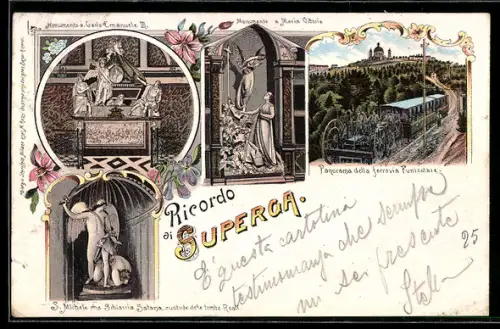 Monumento a Carlo Emanuele III.
Monumento a Maria Vittoria
Panorama della ferrovia Funicolare.
Ricordo
di SUPERGA.
S. Michele che Schiaccia Satana, custode delle tombe Reali
È questa cartolina
testimonianza che sempre
mi sei presente
25